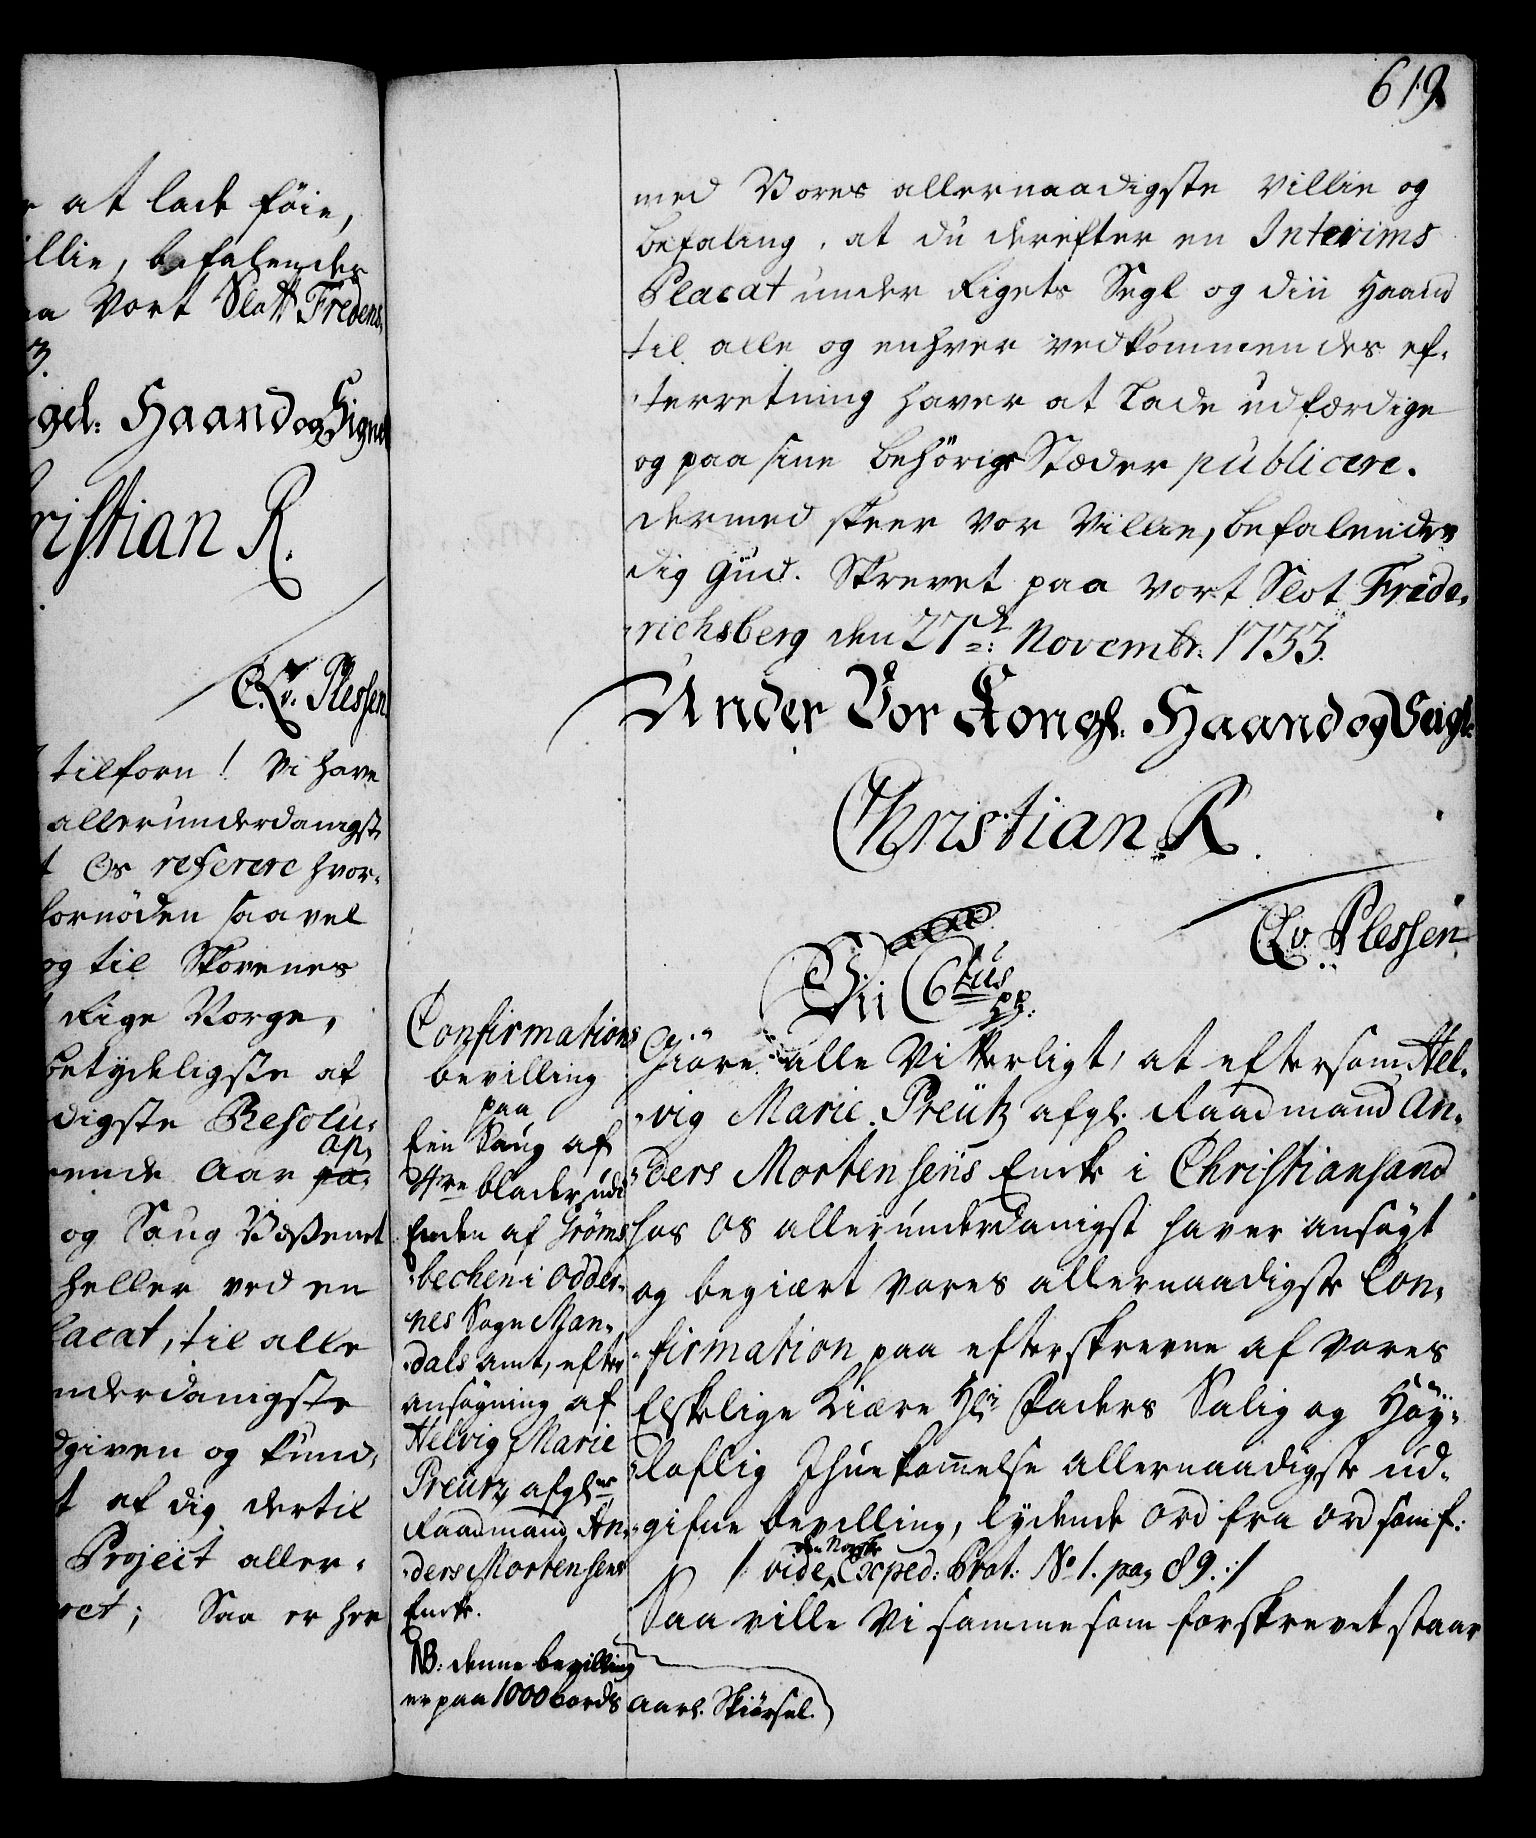 e at lade føie,
illie, befalendes
aa Vort Slott Fredens-
3.
gel: Haand og Signet
hristian R.
C. A. v. Plessen
tilforn! Vi have
allerunderdanigst
t Os referere hvor-
fornøden saavel
og til Skovenes
Rige Norge,
betydeligste af
digste Resolu-
ap-
ende Aar pa-
og Saug Væsenet
heller ved en
lacat, til alle
nderdanigste
dgiven og kund-
t af dig dertil
Project aller-
ret; Saa er her
619
med Vores allernaadigste Villie og
befaling, at du derefter en Interims
Placat under Rigets Segl og din Haand
til alle og enhver vedkommendes ef-
-terretning haver at lade udfærdige
og paa sine behørige Stæder publicere.
dermed skeer Vor Villie, befalendes
dig Gud. Skrevet paa vort Slot Fride-
-richsberg den 27de: Novembr: 1733.
Under Vor Kongl: Haand og Seigl.
Christian R.
C A v. Plessen
Vi C 6tus pp:
Confirmations
bevilling
paa
Een Saug af
4re blader, udi
Enden af Grøms
-bechen i Odder-
nes Sogn Man-
-dals amt, efter
ansøgning af
Helvig Marie
Preutz afglne
Raadmand An-
-ders Mortensens
Encke.
NB: denne bevilling
er paa 1000 bords aarl. Skiørsel.
Giøre alle Vitterligt, at eftersom Hel-
-vig Marie Preütz afgl. Raadmand An-
-ders Mortensens Encke i Christiansand
hos os allerunderdanigst haver ansøgt
og begiært vores allernaadigste Con-
-firmation paa efterskrevne af vores
Elskelige Kiære Hr: Faders Salig og Høy-
-loflig Ihuekommelse allernaadigste ud-
-gifne bevilling, lydende Ord fra Ord som f:
den Norske
/: vide Exped: Prot: No 1. pag 89. :/
Saa ville Vi samme som forskrevet staar